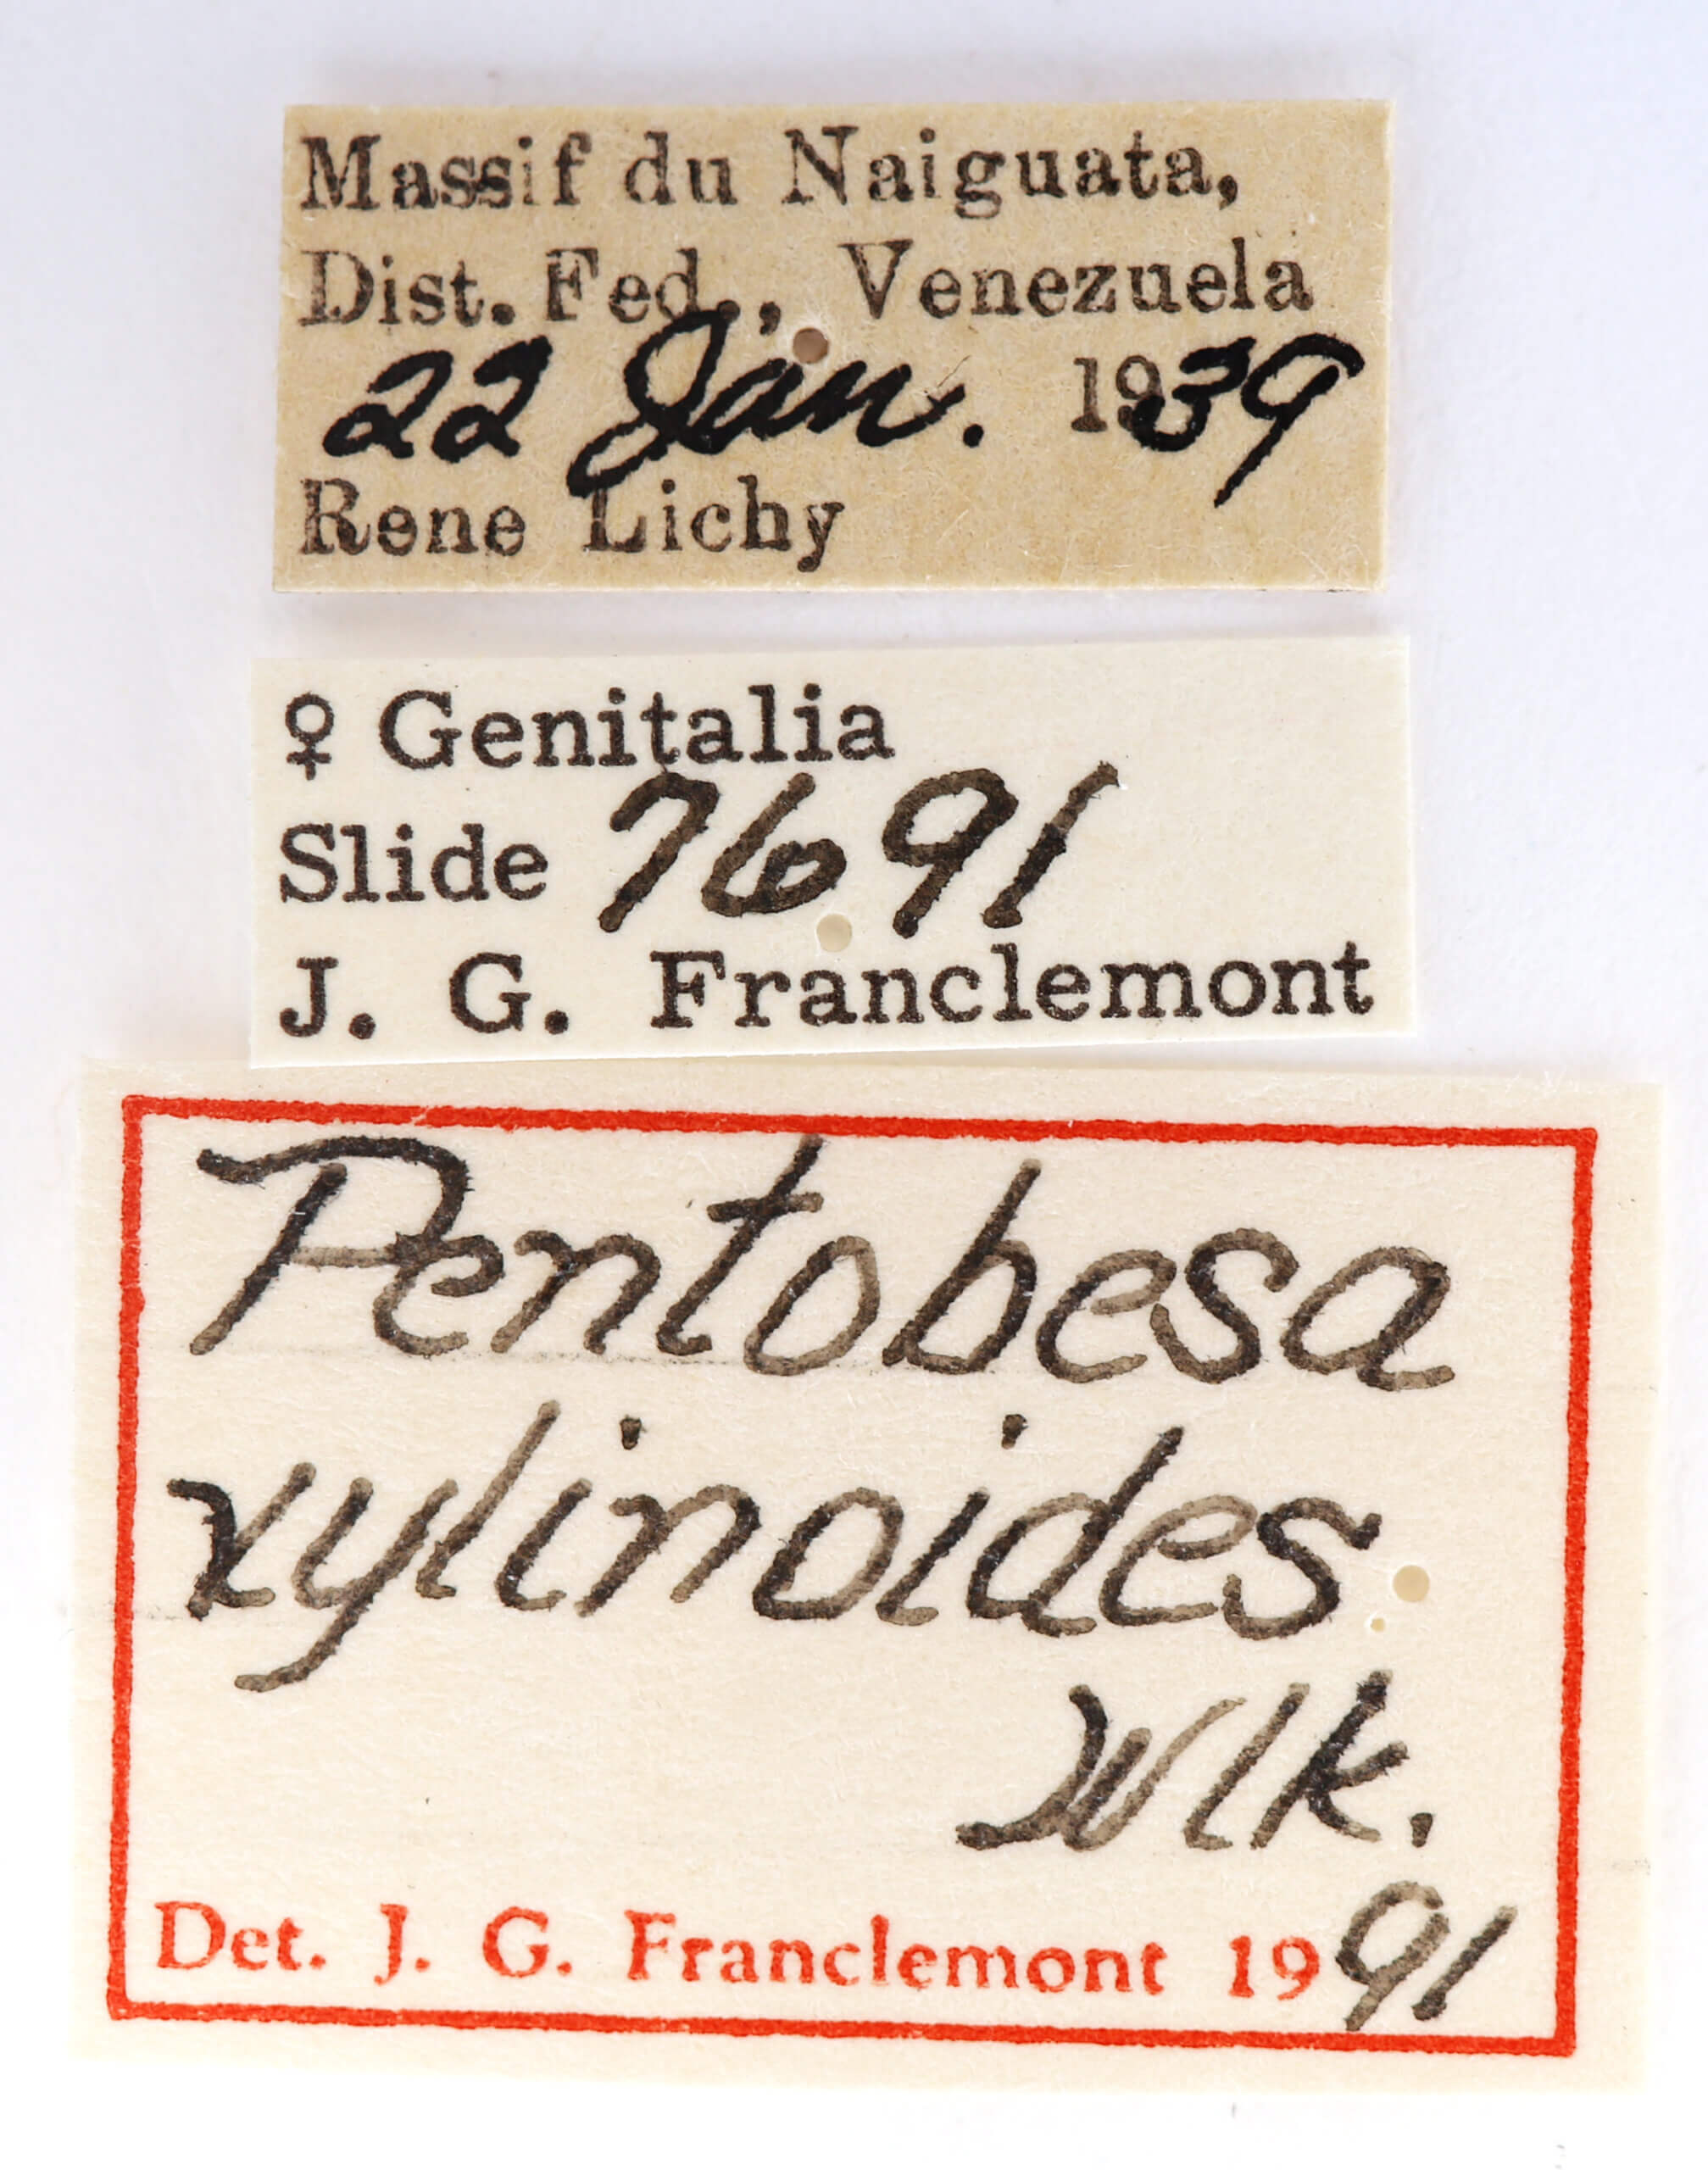 Massif du Naiguata,
Dist. Fed., Venezuela
22 Jan. 1939
Rene Lichy
♀ Genitalia
Slide 7691
J. G. Franclemont
Pentobesa
xylinoides
Wlk.
Det. J. G. Franclemont 1991